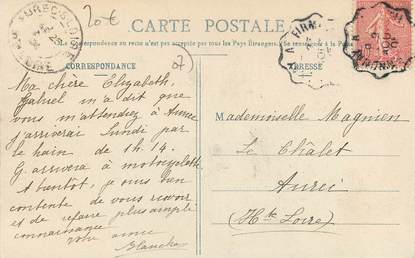 20€
CARTE POSTALE
La correspondance au recto n'est pas acceptée par tous les Pays Étrangers.
CORRESPONDANCE
ADRESSE
Ma chère Elizabeth,
m'a dit que
vous m'attendez à Aurec
J'arriverai Lundi par
le train de 1h.14.
G. arrivera à motocyclette
A bientôt, je suis bien
contente de vous revoir
et de refaire plus ample
connaissance
votre amie
Blanche
Mademoiselle Magnien
Le Châlet
Aurec
(Hte Loire)